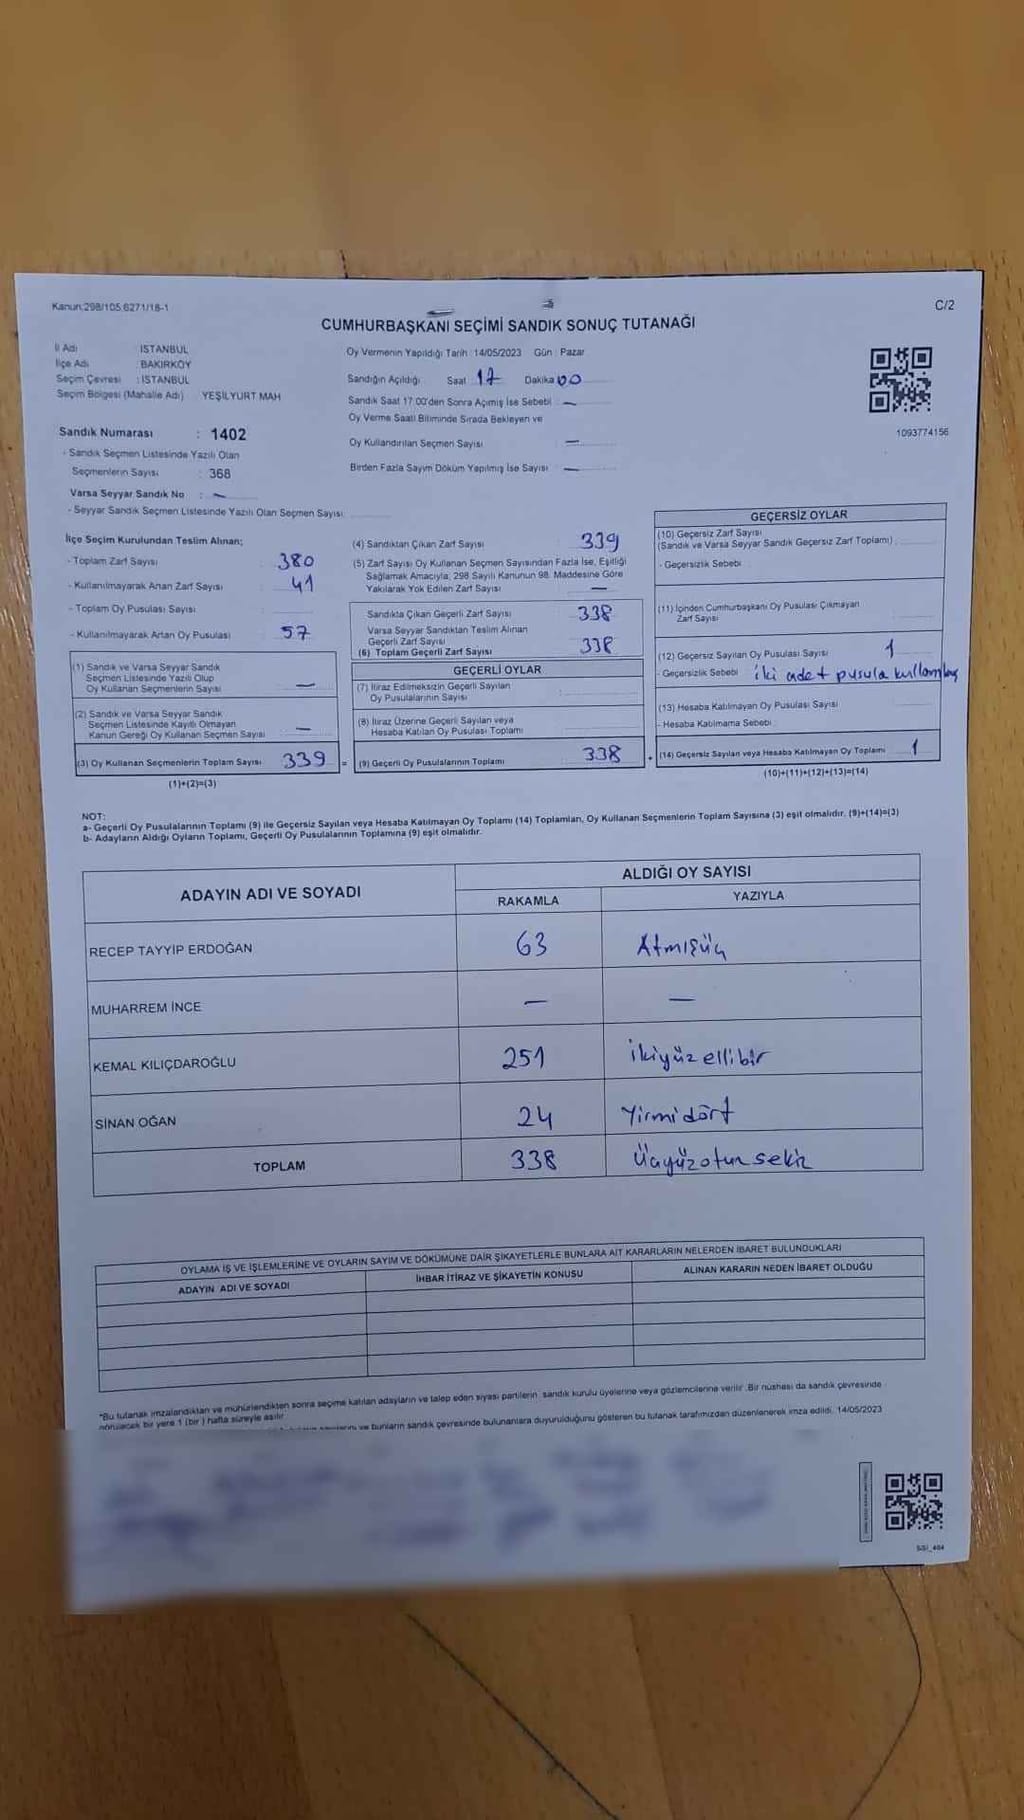 Kanun:298/105,6271/18-1
C/2
CUMHURBAŞKANI SEÇİMİ SANDIK SONUÇ TUTANAĞI
İl Adı : İSTANBUL
İlçe Adı : BAKIRKÖY
Seçim Çevresi : İSTANBUL
Seçim Bölgesi (Mahalle Adı) YEŞİLYURT MAH
Sandık Numarası : 1402
- Sandık Seçmen Listesinde Yazılı Olan
Seçmenlerin Sayısı : 368
Varsa Seyyar Sandık No : —
- Seyyar Sandık Seçmen Listesinde Yazılı Olan Seçmen Sayısı:
Oy Vermenin Yapıldığı Tarih : 14/05/2023 Gün : Pazar
Sandığın Açıldığı Saat 17 Dakika 00
Sandık Saat 17.00'den Sonra Açılmış İse Sebebi : —
Oy Verme Saati Bitiminde Sırada Bekleyen ve
Oy Kullandırılan Seçmen Sayısı —
Birden Fazla Sayım Döküm Yapılmış İse Sayısı : —
1093774156
İlçe Seçim Kurulundan Teslim Alınan;
- Toplam Zarf Sayısı : 380
- Kullanılmayarak Artan Zarf Sayısı : 41
- Toplam Oy Pusulası Sayısı :
- Kullanılmayarak Artan Oy Pusulası : 57
(1) Sandık ve Varsa Seyyar Sandık
Seçmen Listesinde Yazılı Olup
Oy Kullanan Seçmenlerin Sayısı —
(2) Sandık ve Varsa Seyyar Sandık
Seçmen Listesinde Kayıtlı Olmayan
Kanun Gereği Oy Kullanan Seçmen Sayısı —
(3) Oy Kullanan Seçmenlerin Toplam Sayısı 339 =
(1)+(2)=(3)
(4) Sandıktan Çıkan Zarf Sayısı 339
(5) Zarf Sayısı Oy Kullanan Seçmen Sayısından Fazla İse, Eşitliği
Sağlamak Amacıyla, 298 Sayılı Kanunun 98. Maddesine Göre
Yakılarak Yok Edilen Zarf Sayısı —
Sandıkta Çıkan Geçerli Zarf Sayısı 338
Varsa Seyyar Sandıktan Teslim Alınan
Geçerli Zarf Sayısı
(6) Toplam Geçerli Zarf Sayısı 338
GEÇERLİ OYLAR
(7) İtiraz Edilmeksizin Geçerli Sayılan
Oy Pusulalarının Sayısı
(8) İtiraz Üzerine Geçerli Sayılan veya
Hesaba Katılan Oy Pusulası Toplamı
(9) Geçerli Oy Pusulalarının Toplamı 338 +
GEÇERSİZ OYLAR
(10) Geçersiz Zarf Sayısı
(Sandık ve Varsa Seyyar Sandık Geçersiz Zarf Toplamı)
- Geçersizlik Sebebi :
(11) İçinden Cumhurbaşkanı Oy Pusulası Çıkmayan
Zarf Sayısı
(12) Geçersiz Sayılan Oy Pusulası Sayısı 1
- Geçersizlik Sebebi : iki adet pusula kullanmış
(13) Hesaba Katılmayan Oy Pusulası Sayısı
- Hesaba Katılmama Sebebi :
(14) Geçersiz Sayılan veya Hesaba Katılmayan Oy Toplamı 1
(10)+(11)+(12)+(13)=(14)
NOT:
a- Geçerli Oy Pusulalarının Toplamı (9) ile Geçersiz Sayılan veya Hesaba Katılmayan Oy Toplamı (14) Toplamları, Oy Kullanan Seçmenlerin Toplam Sayısına (3) eşit olmalıdır. (9)+(14)=(3)
b- Adayların Aldığı Oyların Toplamı, Geçerli Oy Pusulalarının Toplamına (9) eşit olmalıdır.
ADAYIN ADI VE SOYADI
ALDIĞI OY SAYISI
RAKAMLA YAZIYLA
RECEP TAYYİP ERDOĞAN 63 Atmışüç
MUHARREM İNCE — —
KEMAL KILIÇDAROĞLU 251 ikiyüz ellibir
SİNAN OĞAN 24 Yirmidört
TOPLAM 338 Üçyüzotuz sekiz
OYLAMA İŞ VE İŞLEMLERİNE VE OYLARIN SAYIM VE DÖKÜMÜNE DAİR ŞİKAYETLERLE BUNLARA AİT KARARLARIN NELERDEN İBARET BULUNDUKLARI
ADAYIN ADI VE SOYADI İHBAR İTİRAZ VE ŞİKAYETİN KONUSU ALINAN KARARIN NEDEN İBARET OLDUĞU
*Bu tutanak imzalandıktan ve mühürlendikten sonra seçime katılan adayların ve talep eden siyasi partilerin sandık kurulu üyelerine veya gözlemcilerine verilir. Bir nüshası da sandık çevresinde
görülecek bir yere 1 (bir) hafta süreyle asılır.
ve bunların sandık çevresinde bulunanlara duyurulduğunu gösteren bu tutanak tarafımızdan düzenlenerek imza edildi. 14/05/2023